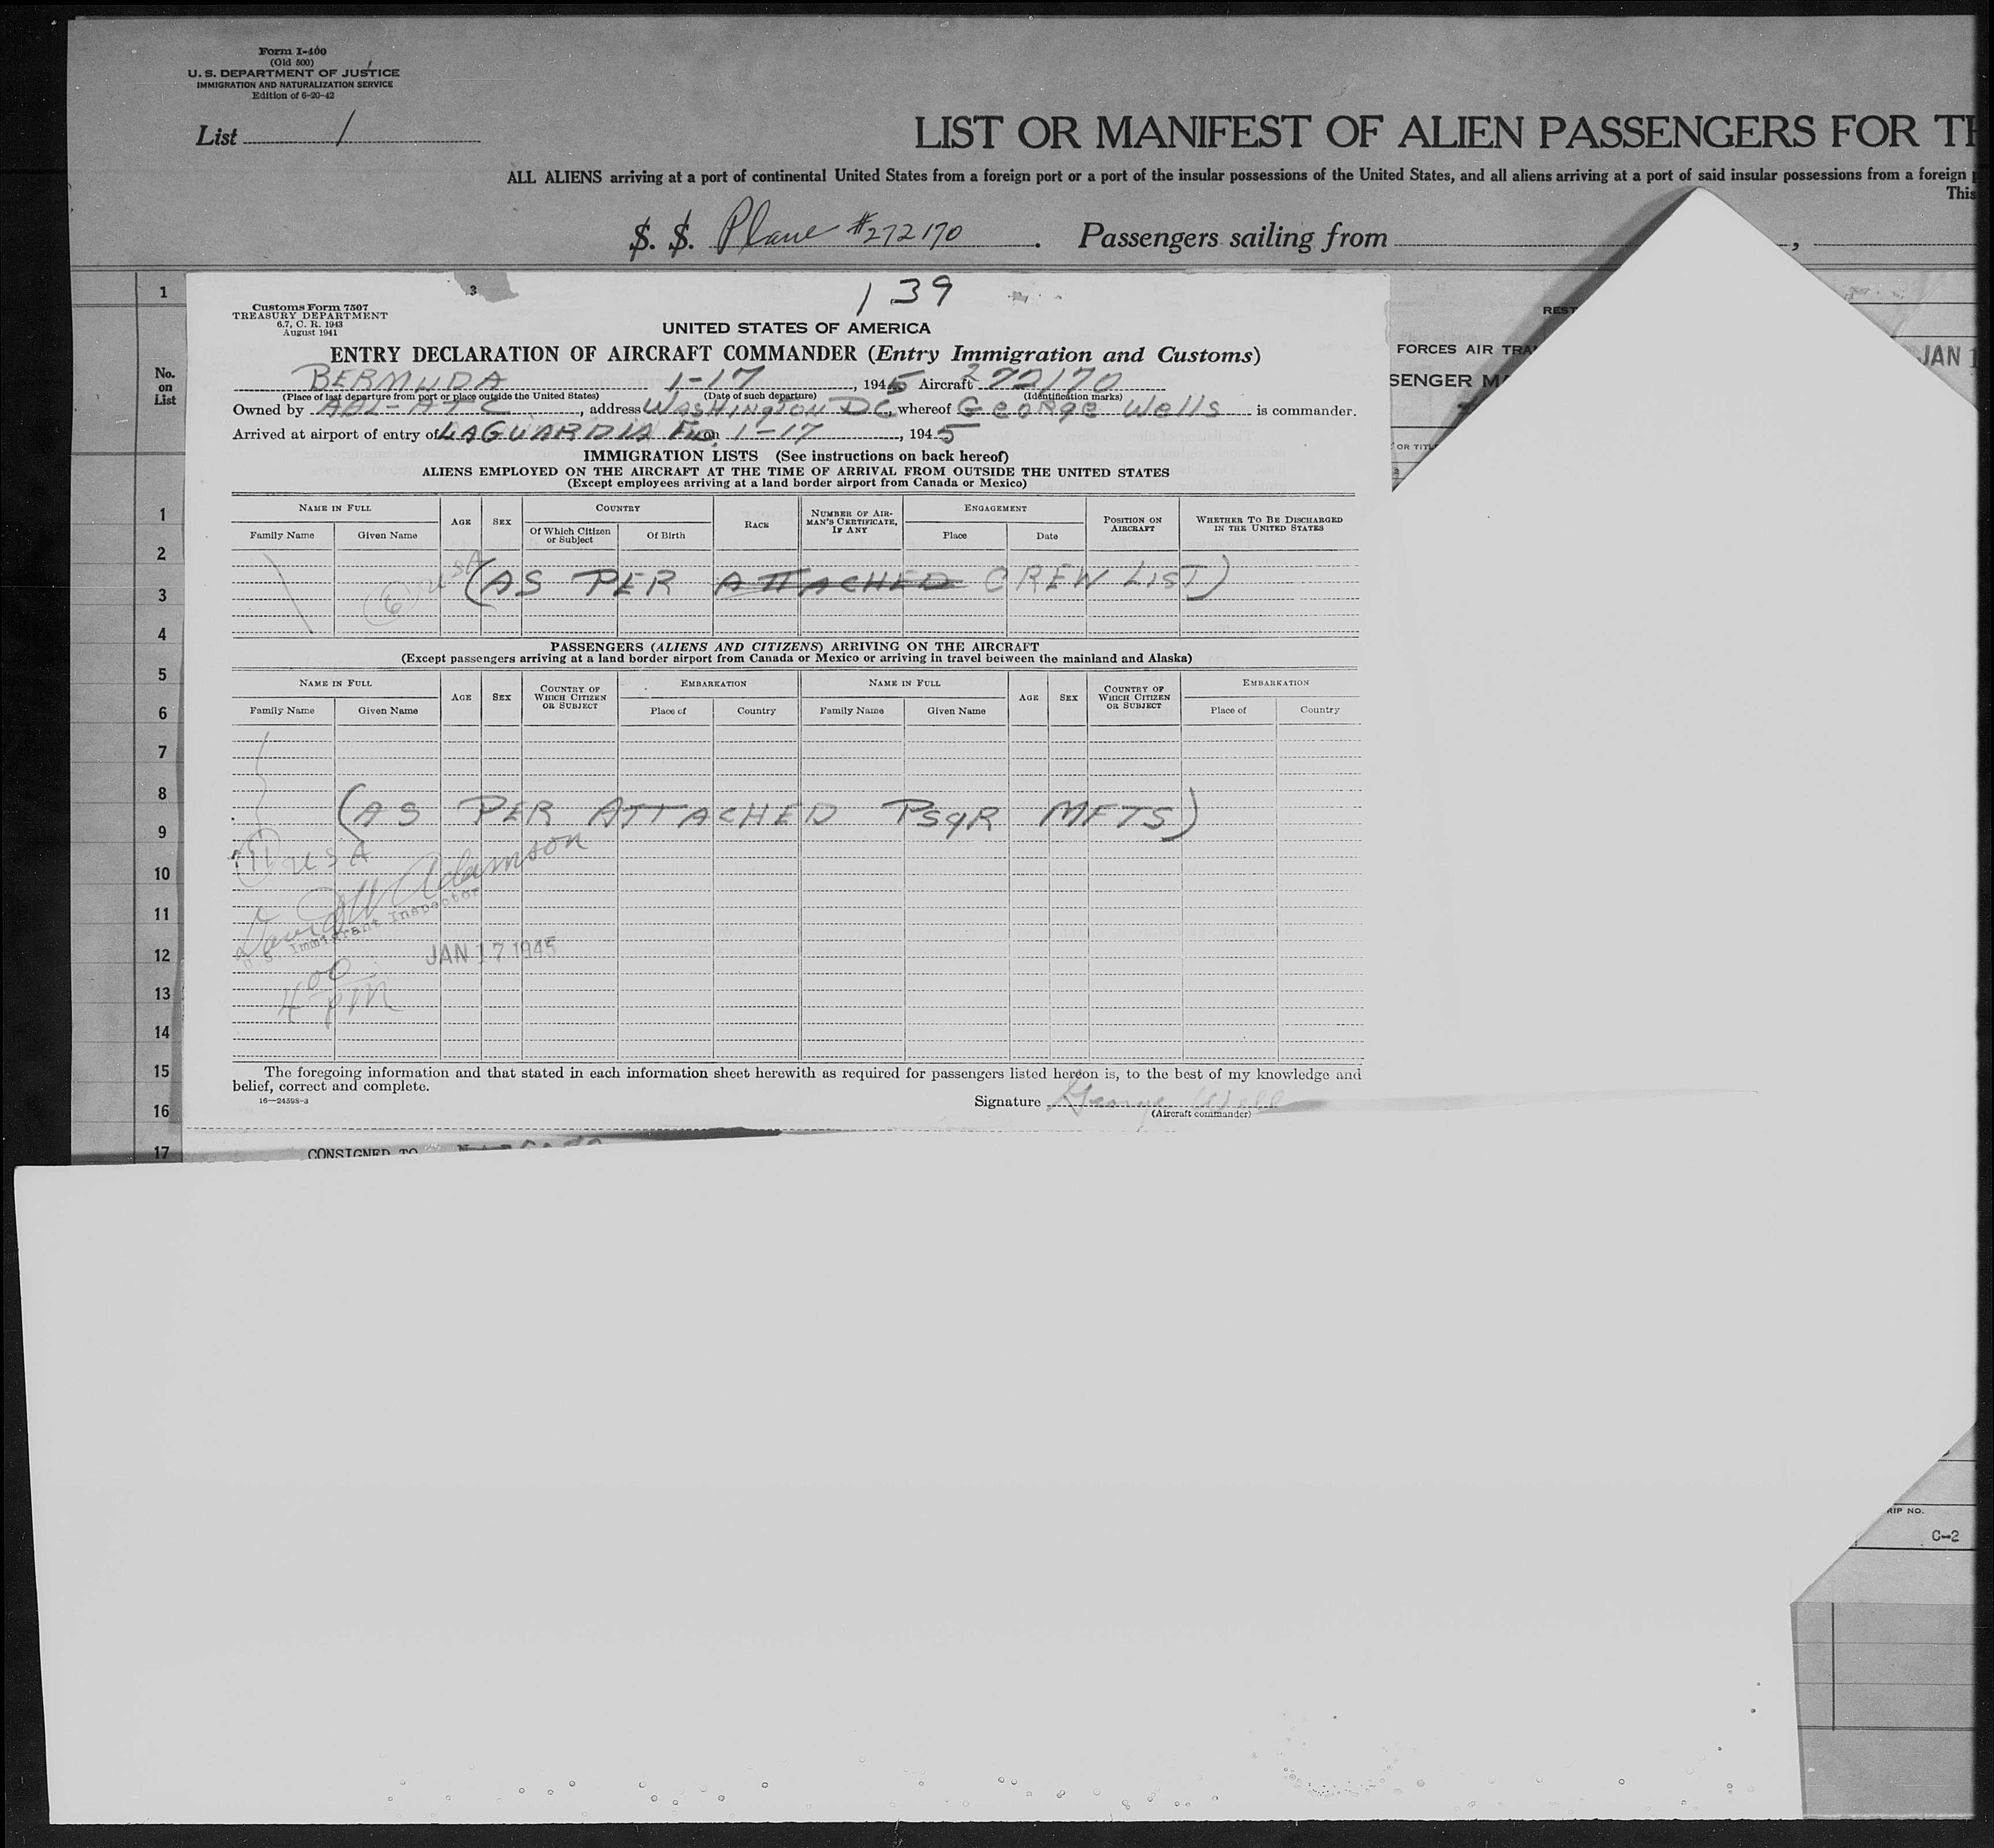 Form I-400
(Old 500)
U. S. DEPARTMENT OF JUSTICE
IMMIGRATION AND NATURALIZATION SERVICE
Edition of 6-20-42
List 1
LIST OR MANIFEST OF ALIEN PASSENGERS FOR TH
ALL ALIENS arriving at a port of continental United States from a foreign port or a port of the insular possessions of the United States, and all aliens arriving at a port of said insular possessions from a foreign
This
S. S. Plane #272170 . Passengers sailing from ,
No. on List
1
1
2
3
4
5
6
7
8
9
10
11
12
13
14
15
16
17
3
139
Customs Form 7507
TREASURY DEPARTMENT
6.7, C. R. 1943
August 1941
UNITED STATES OF AMERICA
ENTRY DECLARATION OF AIRCRAFT COMMANDER (Entry Immigration and Customs)
BERMUDA 1-17, 1945 Aircraft 272170
(Place of last departure from port or place outside the United States) (Date of such departure) (Identification marks)
Owned by AAL-ATC, address WASHINGTON DC, whereof George Wells is commander.
Arrived at airport of entry of LAGUARDIA FLD. on 1-17, 1945
IMMIGRATION LISTS (See instructions on back hereof)
ALIENS EMPLOYED ON THE AIRCRAFT AT THE TIME OF ARRIVAL FROM OUTSIDE THE UNITED STATES
(Except employees arriving at a land border airport from Canada or Mexico)
NAME IN FULL AGE SEX COUNTRY RACE NUMBER OF AIRMAN'S CERTIFICATE, IF ANY ENGAGEMENT POSITION ON AIRCRAFT WHETHER TO BE DISCHARGED IN THE UNITED STATES
Family Name Given Name Of Which Citizen or Subject Of Birth Place Date
6 USA
(AS PER ATTACHED CREW LIST)
PASSENGERS (ALIENS AND CITIZENS) ARRIVING ON THE AIRCRAFT
(Except passengers arriving at a land border airport from Canada or Mexico or arriving in travel between the mainland and Alaska)
NAME IN FULL AGE SEX COUNTRY OF WHICH CITIZEN OR SUBJECT EMBARKATION NAME IN FULL AGE SEX COUNTRY OF WHICH CITIZEN OR SUBJECT EMBARKATION
Family Name Given Name Place of Country Family Name Given Name Place of Country
(AS PER ATTACHED PSGR MFTS)
11 USA
David W Adamson
U.S. Immigrant Inspector
JAN 17 1945
4 00 PM
The foregoing information and that stated in each information sheet herewith as required for passengers listed hereon is, to the best of my knowledge and
belief, correct and complete.
16—24598-3
Signature George Wells
(Aircraft commander)
CONSIGNED TO
REST
FORCES AIR TRA
SENGER MA
OR TITL
JAN 1
RIP NO.
C-2